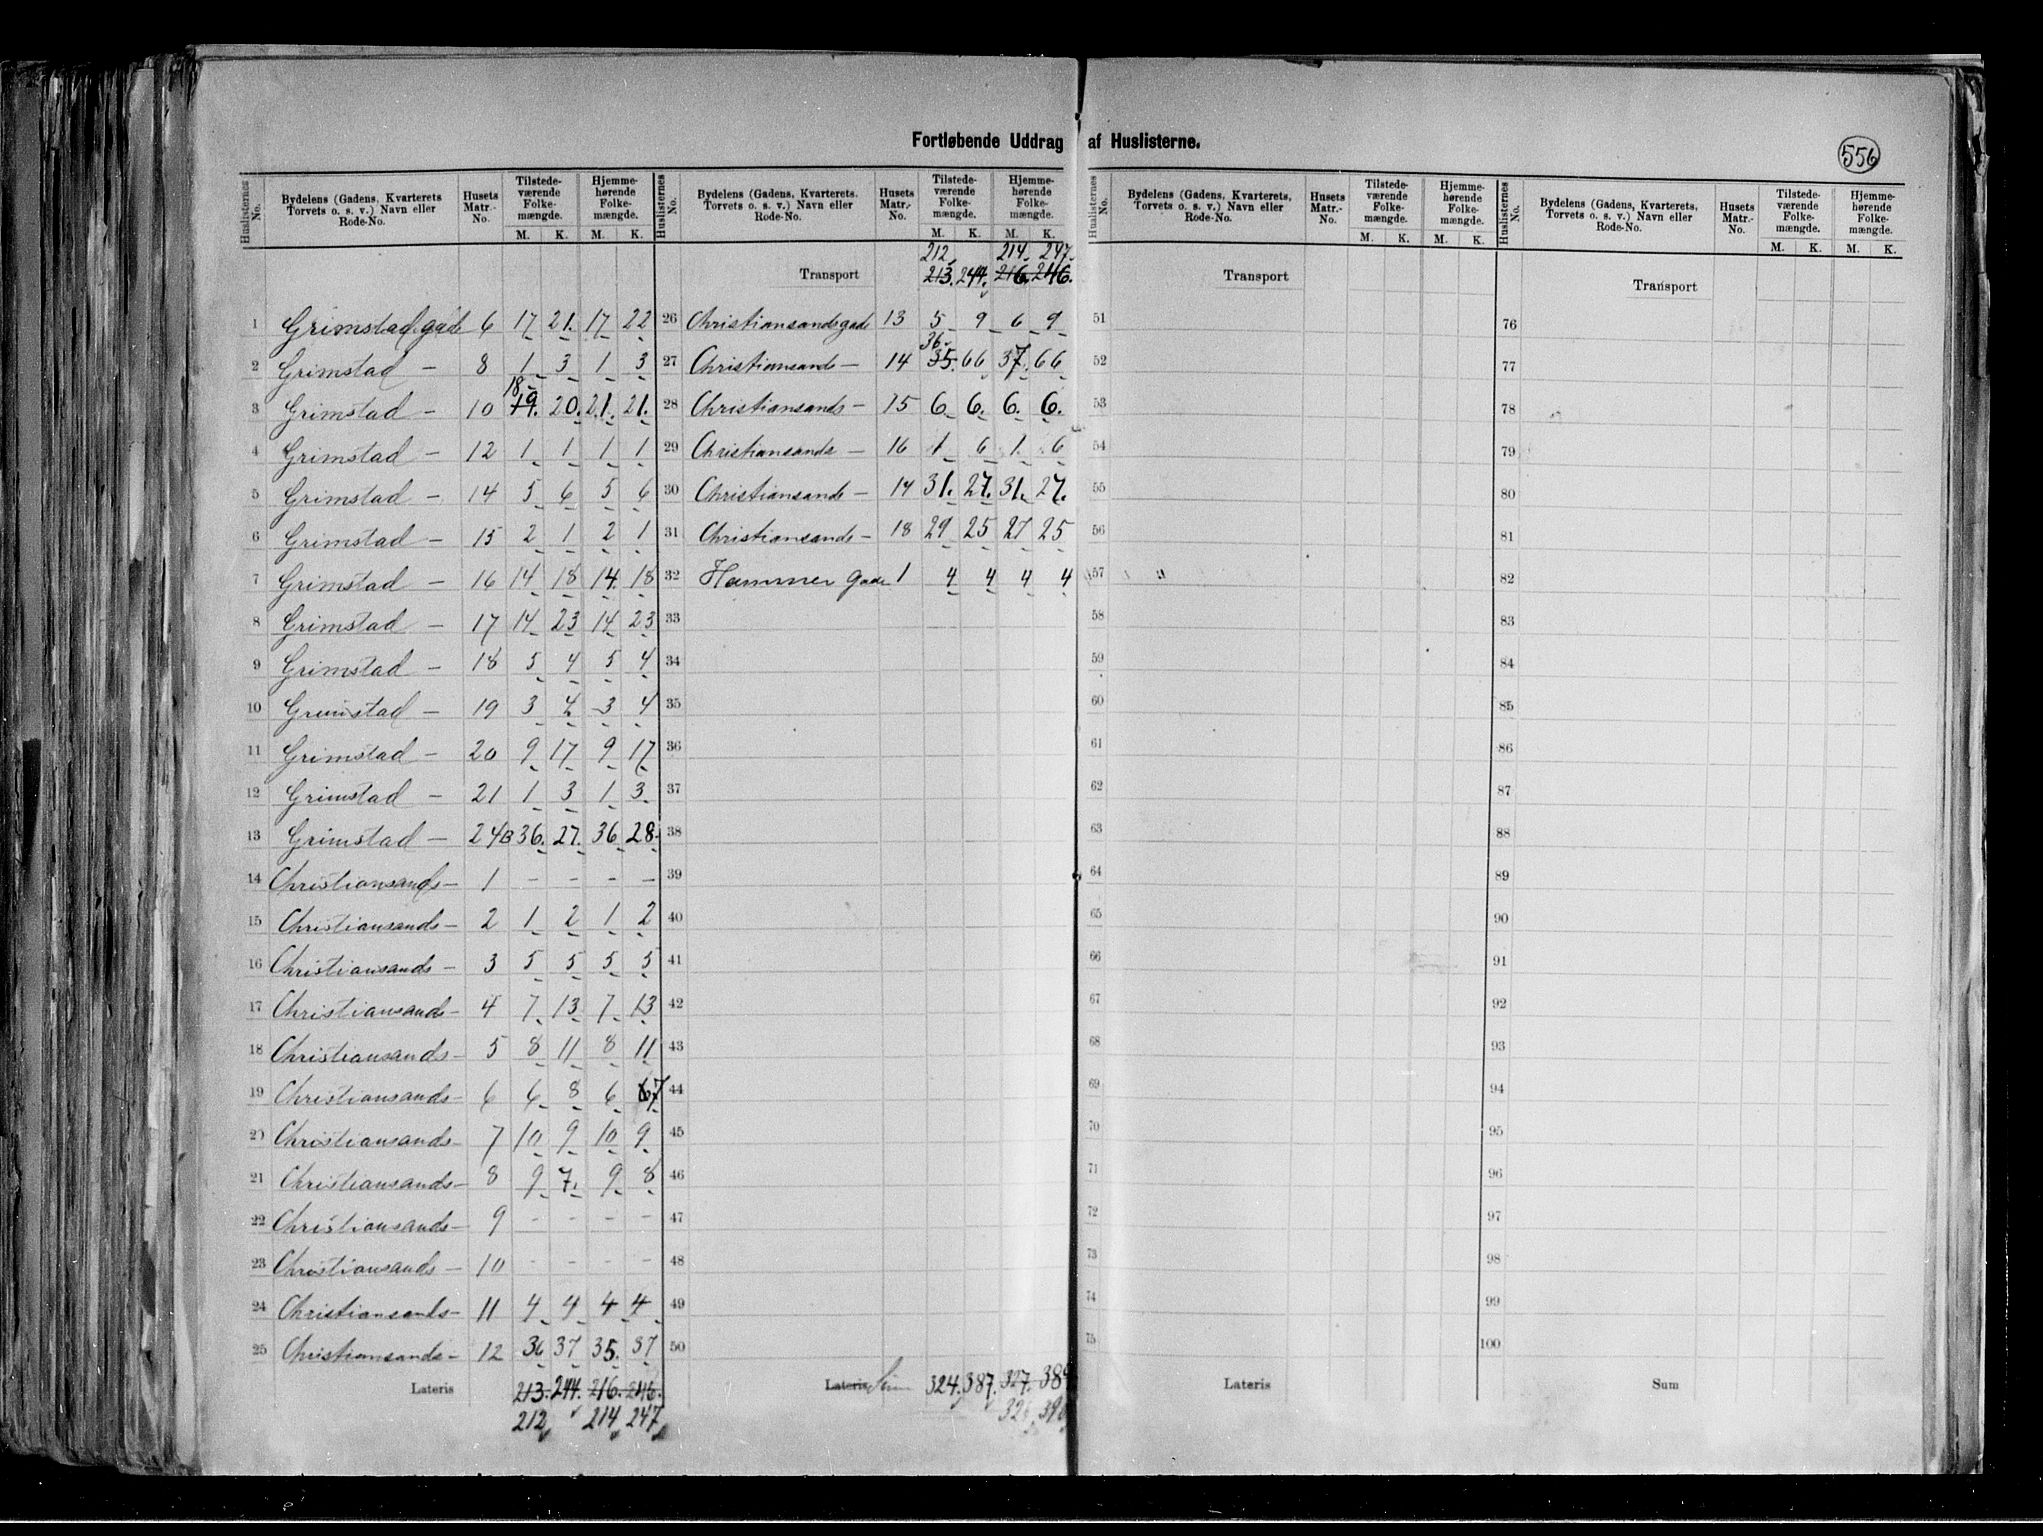 Fortløbende Uddrag af Huslisterne.
556
Huslisternes No. Bydelens (Gadens, Kvarterets Torvets o. s. v.) Navn eller Rode-No. Husets Matr.-No. Tilstedeværende Folkemængde. M. K. Hjemmehørende Folkemængde. M. K.
1 Grimstad gade 6 17 21. 17 22
2 Grimstad — 8 1 3 1 3
3 Grimstad — 10 18 19. 20. 21. 21.
4 Grimstad — 12 1 1 1 1
5 Grimstad — 14 5 6 5 6
6 Grimstad — 15 2 1 2 1
7 Grimstad — 16 14 18 14. 18
8 Grimstad — 17 14 23 14 23
9 Grimstad — 18 5 4 5 4
10 Grimstad — 19 3 4 3 4
11 Grimstad — 20 9 17 9 17
12 Grimstad — 21 1 3 1 3
13 Grimstad — 24B 36. 27. 36 28
14 Christiansands — 1 – – – –
15 Christiansands — 2 1 2 1 2
16 Christiansands — 3 5 5 5 5
17 Christiansands — 4 7 13 7 13
18 Christiansands — 5 8 11 8 11
19 Christiansands — 6 6 8 6 7
20 Christiansands — 7 10 9 10 9
21 Christiansands — 8 9 7. 9 8
22 Christiansands — 9 – – – –
23 Christiansands — 10 – – – –
24 Christiansands — 11 4 4 4 4
25 Christiansands — 12 36 37 35. 37
Lateris 213. 244. 216. 246.
212 214 247
Huslisternes No. Bydelens (Gadens, Kvarterets, Torvets o. s. v.) Navn eller Rode-No. Husets Matr.-No. Tilstedeværende Folkemængde. M. K. Hjemmehørende Folkemængde. M. K.
212 214 247
Transport 213. 244. 216. 246.
26 Christiansandsgade 13 5 9 6 9
27 Christiansands — 14 36 35. 66 37. 66
28 Christiansands — 15 6 6. 6. 6.
29 Christiansands — 16 1 6 1 6
30 Christiansands — 17 31. 27. 31. 27.
31 Christiansands — 18 29 25 27 25
32 Hammer Gade 1 4 4 4 4
33
34
35
36
37
38
39
40
41
42
43
44
45
46
47
48
49
50
Lateris Sum 324. 387. 327. 389
Huslisternes No. Bydelens (Gadens, Kvarterets, Torvets o. s. v.) Navn eller Rode-No. Husets Matr.-No. Tilstedeværende Folkemængde. M. K. Hjemmehørende Folkemængde. M. K.
Transport
51
52
53
54
55
56
57
58
59
60
61
62
63
64
65
66
67
68
69
70
71
72
73
74
75
Lateris
Huslisternes No. Bydelens (Gadens, Kvarterets, Torvets o. s. v.) Navn eller Rode-No. Husets Matr.-No. Tilstedeværende Folkemængde. M. K. Hjemmehørende Folkemængde. M. K.
Transport
76
77
78
79
80
81
82
83
84
85
86
87
88
89
90
91
92
93
94
95
96
97
98
99
100
Sum